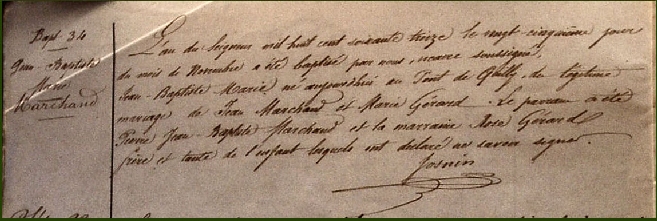 Bapt. 34
Jean-Baptiste
Marie
Marchand
L'an du Seigneur mil huit cent soixante treize le vingt cinquième jour
du mois de Novembre a été baptisé par nous, vicaire soussigné,
Jean-Baptiste Marie né aujourd'hui au Pont de Ghilly, du légitime
mariage de Jean Marchand et Marie Gérard. Le parrain a été
Pierre Jean-Baptiste Marchand et la marraine Rose Gérard
frère et tante de l'enfant lesquels ont déclaré ne savoir signer.
Josnin